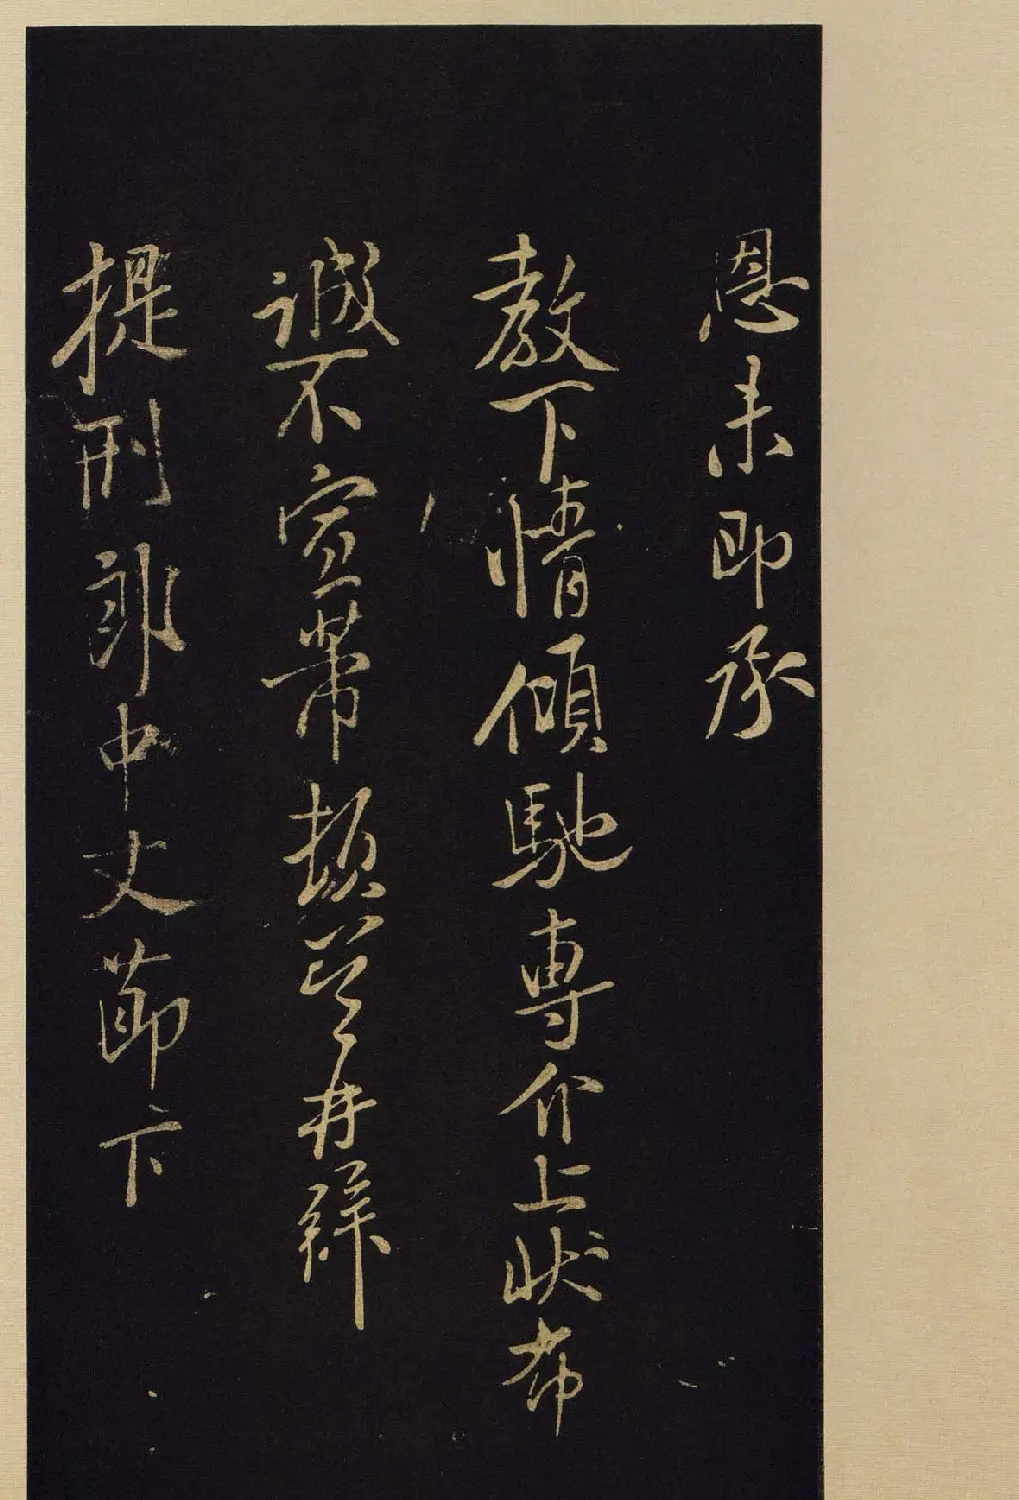 恩未即承
教下情傾馳專介上狀布
誠不宣帶頓首再拜
提刑郎中丈節下